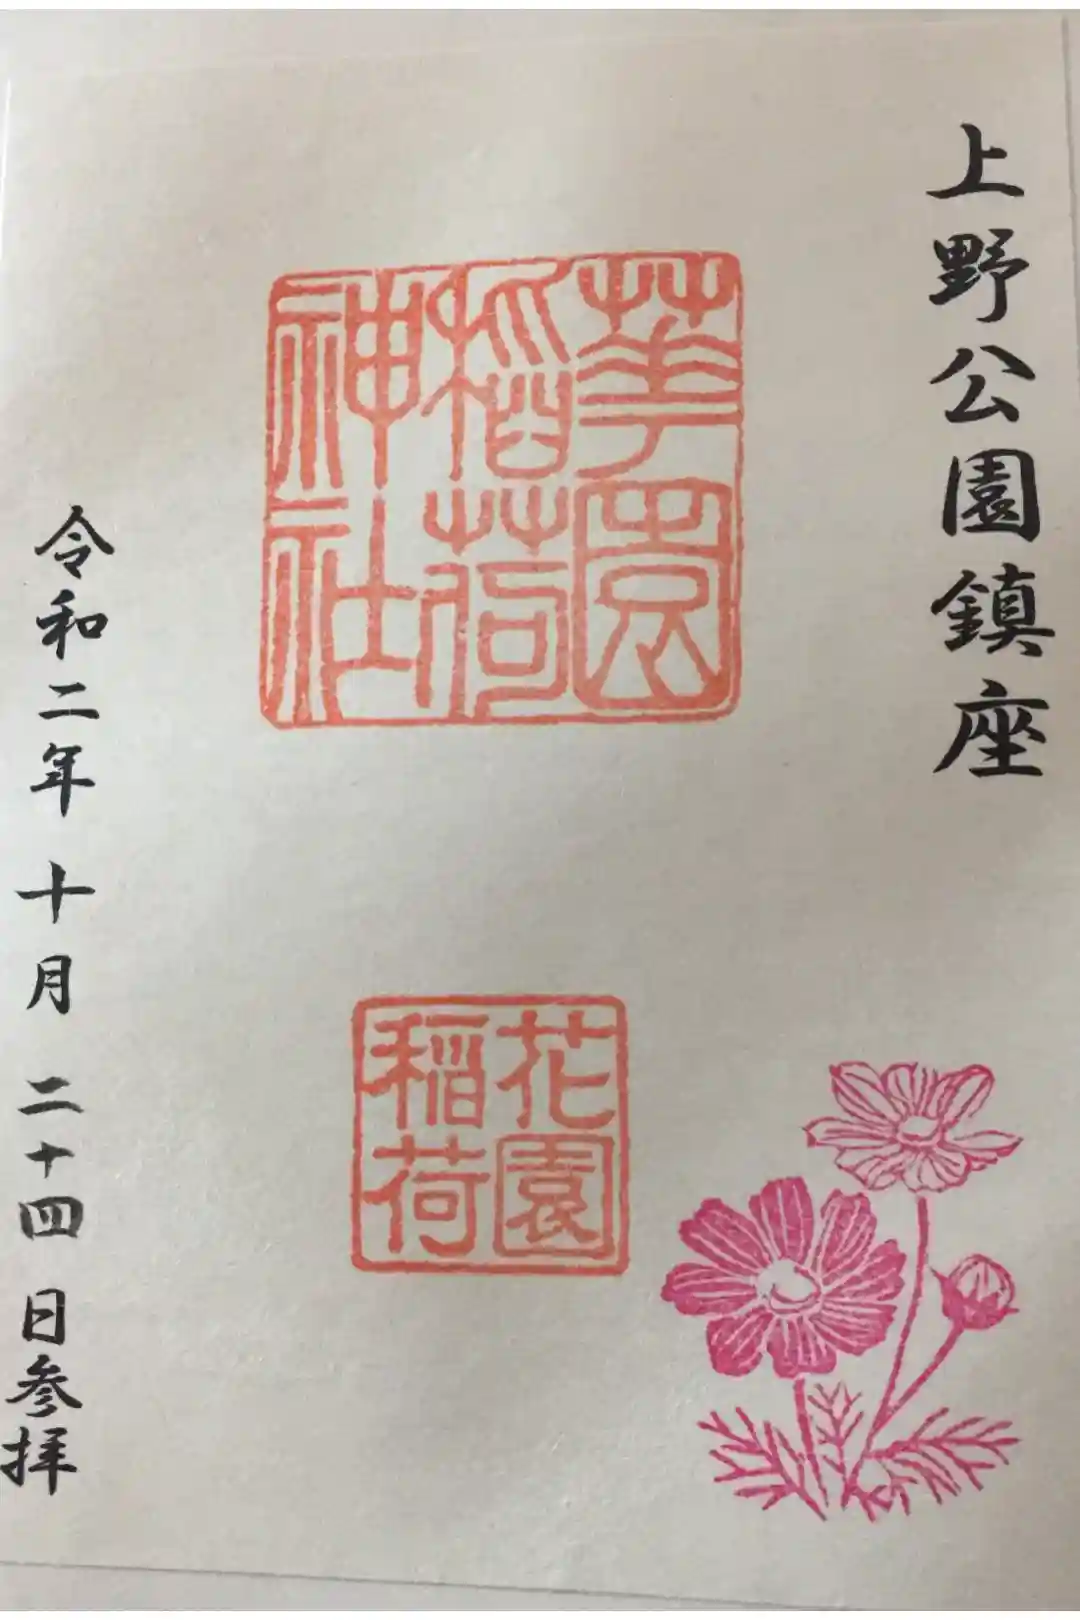 上野公園鎮座
華園
稲荷
神社
花園
稲荷
令和二年 十月 二十四 日参拝